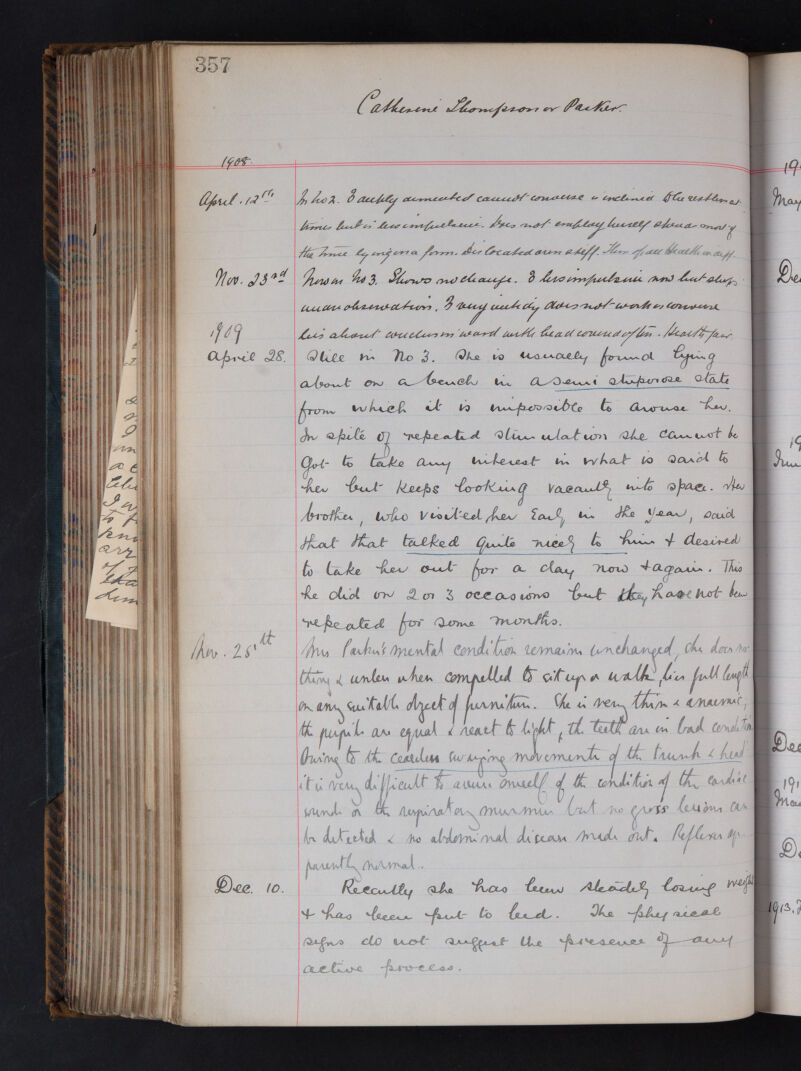 357
Catherine Thompson or Parker.
1908.
April. 12th In No 2. Is demented cannot converse is inclined to be restless at
times but is less impulsive. Does not employ herself spends most of
the time lying on a form. Dislocated arm stiff. Thin
Nov. 23rd Now in No 3. Shows no change. Is less impulsive now but sleeps
under observation. Is very does not work or converse
1909 lies about ward with head covered often. Health fair.
April 28. Still in No 3. She is usually found lying
about on a bench in a semi stuporose state
from which it is impossible to arouse her.
In spite of repeated stimulation she cannot be
got to take any interest in what is said to
her but keeps looking vacantly into space. Her
brother, who visited her early in the year, said
that that talked quite nicely to him & desired
to take her out for a day now & again. This
he did on 2 or 3 occasions but they have not been
repeated for some months.
Nov. 25th Mrs Parker's mental condition remains unchanged, she does no-
thing & unless when compelled to sit up or walk, lies full length
on any suitable object of furniture. She is very thin & anaemic,
the pupils are equal & react to light, the teeth are in bad condition
Owing to the ceaseless swaying movements of the trunk & head
it is very difficult to assure oneself of the condition of the cardiac
sounds or the respiratory murmur but no gross lesions can
be detected & no abdominal disease made out. Reflexes ap-
parently normal.
Dec. 10. Recently she has been steadily losing weight
& has been put to bed. The physical
signs do not suggest the presence of any
active process.